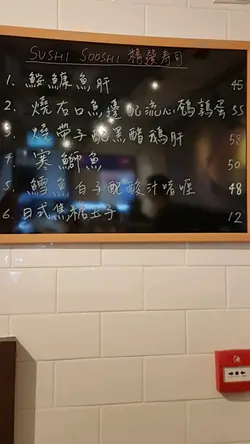 SUSHI SOOSHI 精選壽司
1. 鮟鱇魚肝 45
2. 燒左口魚邊配流心鵪鶉蛋 55
3. 燒帶子配黑醋鵝肝 58
4. 寒鰤魚 50
5. 鱈魚白子配酸汁啫喱 48
6. 日式焦糖玉子 12